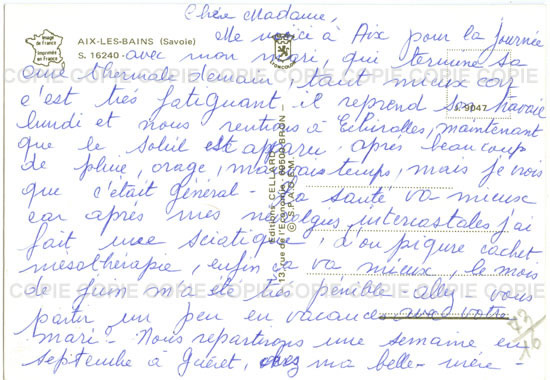 Chère Madame,
Image de France
Imprimée en France
AIX-LES-BAINS (Savoie)
S. 16240
Me voici à Aix pour la journée
avec mon mari, qui termine sa
cure thermale demain, tant mieux car
c'est très fatiguant, il reprend le travail
S-9047
lundi et nous rentrons à Echirolles, maintenant
que le soleil est apparu, après beaucoup
de pluie, orage, mauvais temps, mais je vois
que c'était général - La santé va mieux
car après mes névralgies intercostales j'ai
fait une sciatique, d'où piqûre cachet
mésothérapie, enfin ça va mieux, le mois
de juin m'a été très pénible - allez-vous
partir un peu en vacance avec votre
mari - Nous repartirons une semaine en
septembre à Guéret, chez ma belle-mère -
Editions CELLARD
BRON
COPIE COPIE COPIE COPIE COPIE COPIE
COPIE COPIE COPIE COPIE COPIE COPIE